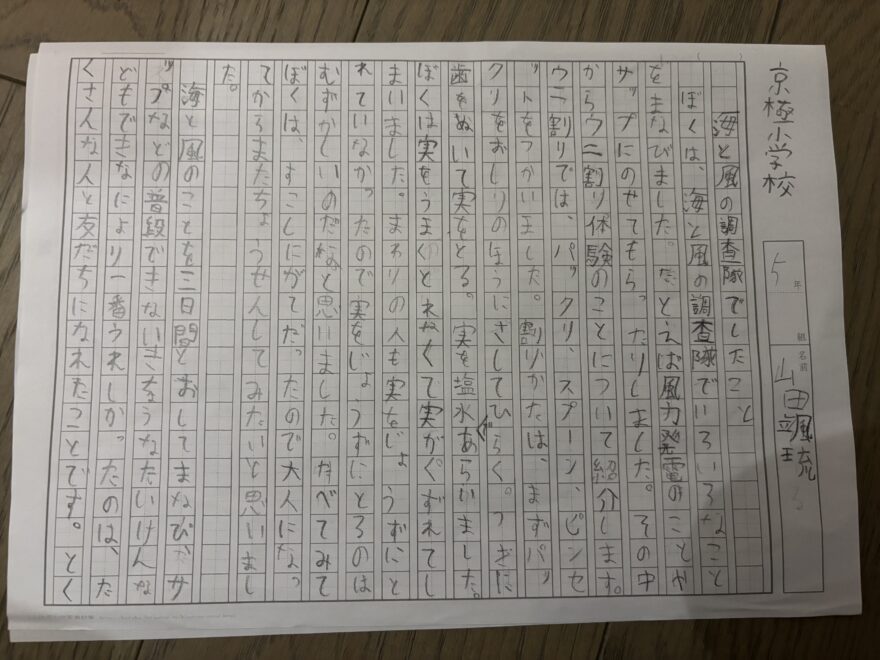 京極小学校
5年 組 名前 山田颯琉
海と風の調査隊でしたこと
ぼくは、海と風の調査隊でいろいろなこと
をまなびました。たとえば風力発電のことや
サップにのせてもらったりしました。その中
からウニ割り体験のことについて紹介します。
ウニ割りでは、パックリ、スプーン、ピンセ
ットをつかいました。割りかたは、まずパッ
クリをおしりのほうにさしてひらく。つぎに
歯をぬいて実をとる。実を塩水であらいました。
ぼくは実をうまくとれなくて実がくずれてし
まいました。まわりの人も実をじょうずにと
れていなかったので実をじょうずにとるのは
むずかしいのだなと思いました。たべてみて
ぼくは、すこしにがてだったので大人になっ
てからまたちょうせんしてみたいと思いまし
た。
海と風のことを三日間とおしてまなび、サ
ップなどの普段できないきちょうなたいけんな
どもできなにより一番うれしかったのは、た
くさんな人と友だちになれたことです。とく